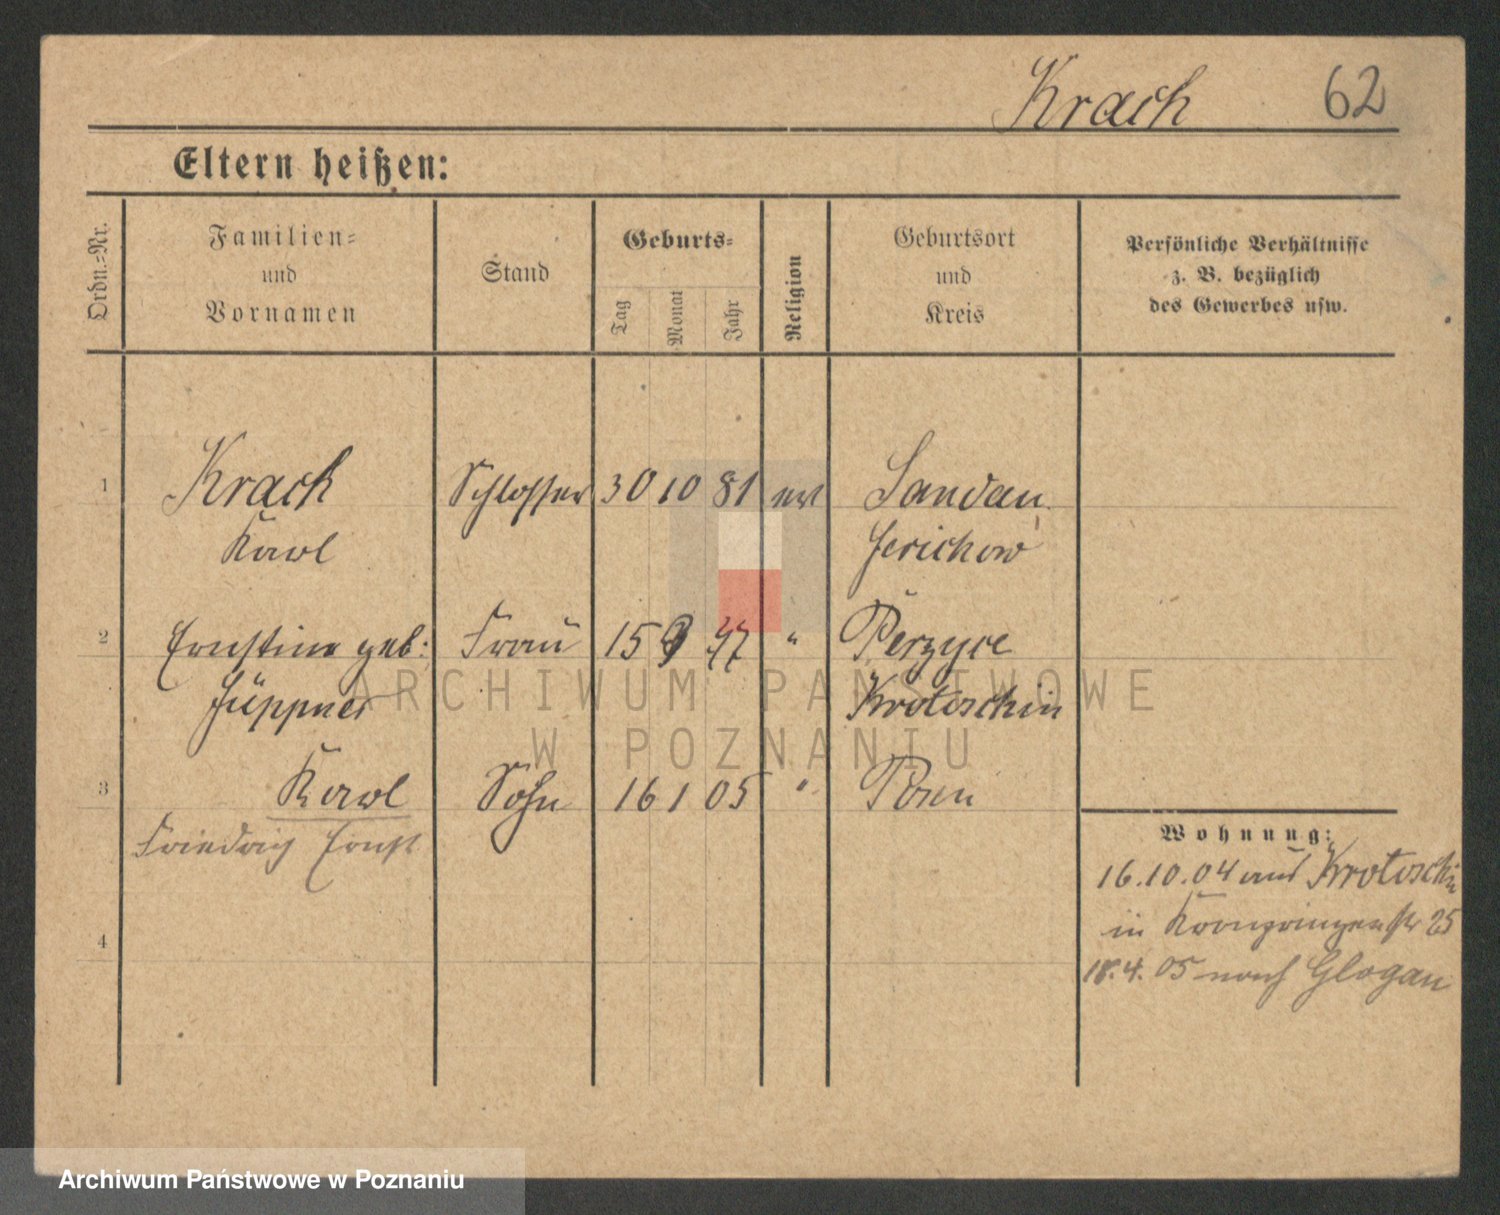 Krach 62
Eltern heißen:
Ordn.-Nr.
Familien-
und
Vornamen
Stand
Geburts-
Tag
Monat
Jahr
Religion
Geburtsort
und
Kreis
Persönliche Verhältnisse
z. B. bezüglich
des Gewerbes usw.
1 Krach Schlosser 30 10 81 ev Sandau
Karl Jerichow
2 Ernstine geb: Frau 15 " Perzyce
Krotoschin
3 Karl Sohn 16 1 05 " Posen
Friedrich Ernst
Wohnung:
16.10.04 aus Krotoschin
in Kronprinzenstr 25
18.4.05 nach Glogau
4
ARCHIWUM PAŃSTWOWE
W POZNANIU
Archiwum Państwowe w Poznaniu